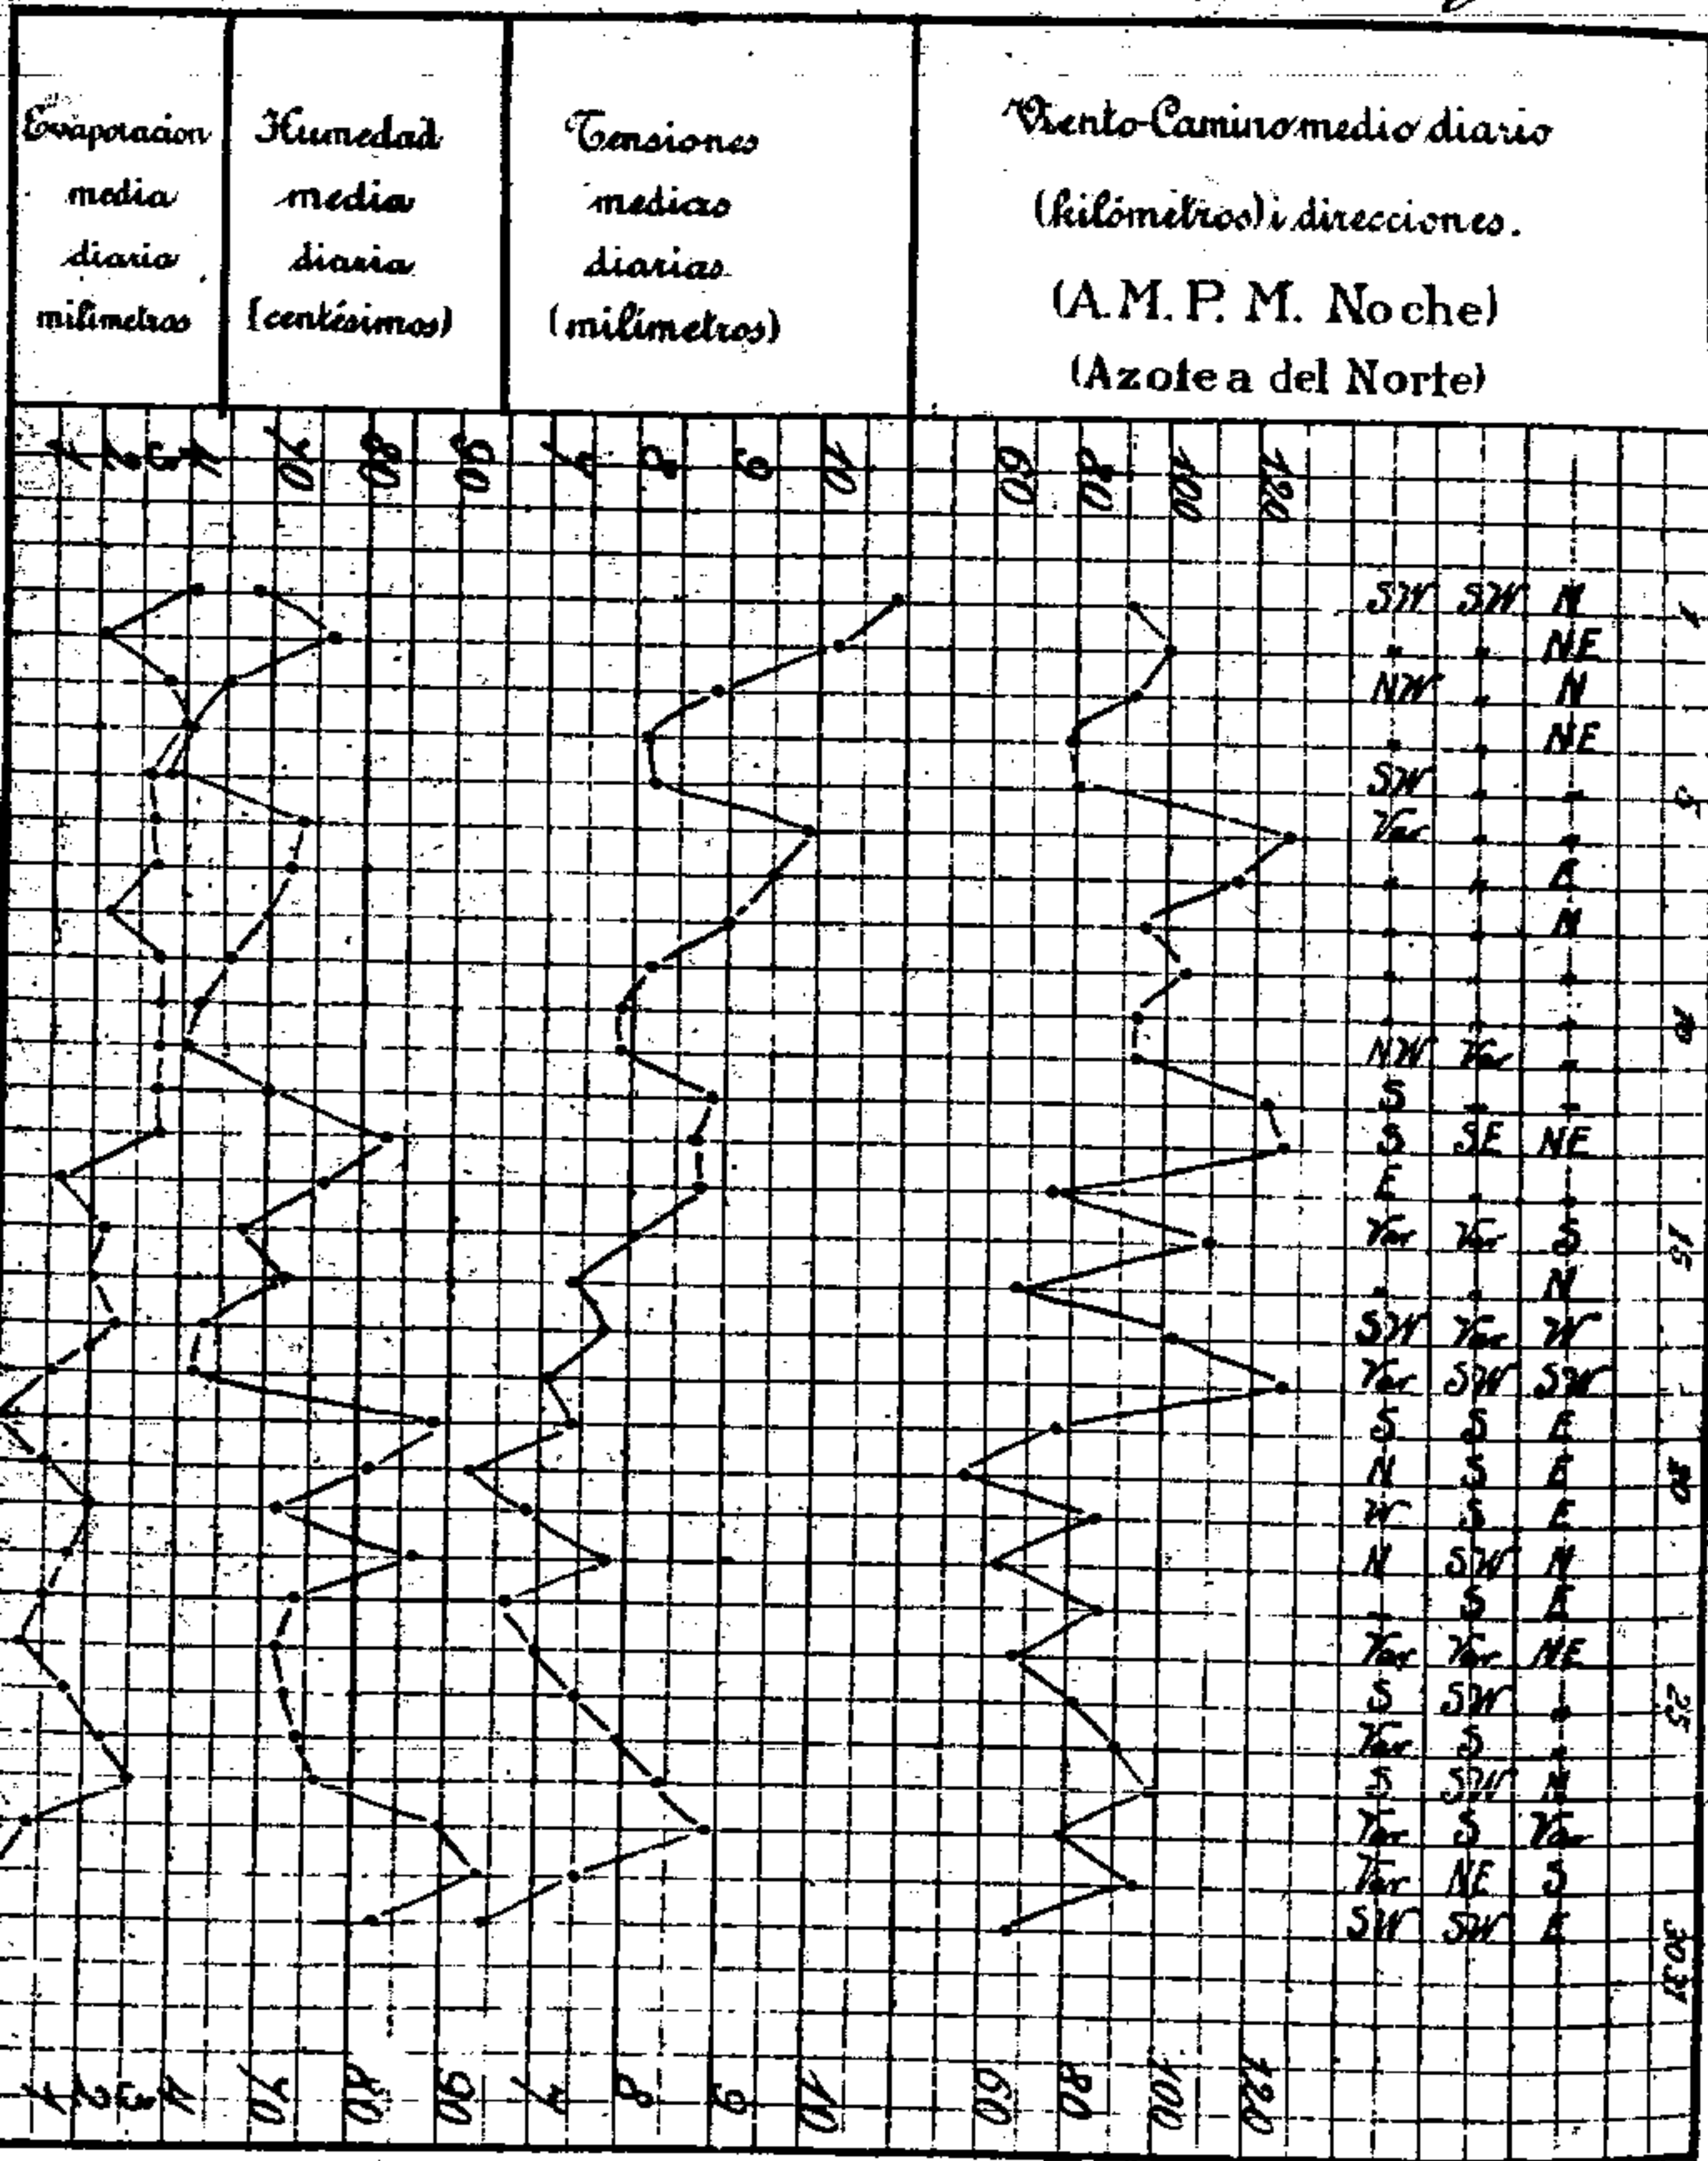 Evaporacion
media
diaria
milimetros
Humedad
media
diaria
(centésimos)
Tensiones
medias
diarias
(milímetros)
Viento-Camino medio diario
(kilómetros) i direcciones.
(A.M. P. M. Noche)
(Azotea del Norte)
1 2 3 4 70 80 90 7 8 9 10 60 80 100 120
SW SW N 1
" " NE
NW " N
" " NE
SW " " 5
Var " "
" " E
" " N
" " "
" " " 10
NW Var "
S " "
S SE NE
E " "
Var Var S 15
" " N
SW Var W
Var SW SW
S S E
N S E 20
W S E
N SW N
" S E
Var Var NE
S SW " 25
Var S "
S SW N
Var S Var
Var NE S
SW SW E 30
31
1 2 3 4 70 80 90 7 8 9 10 60 80 100 120